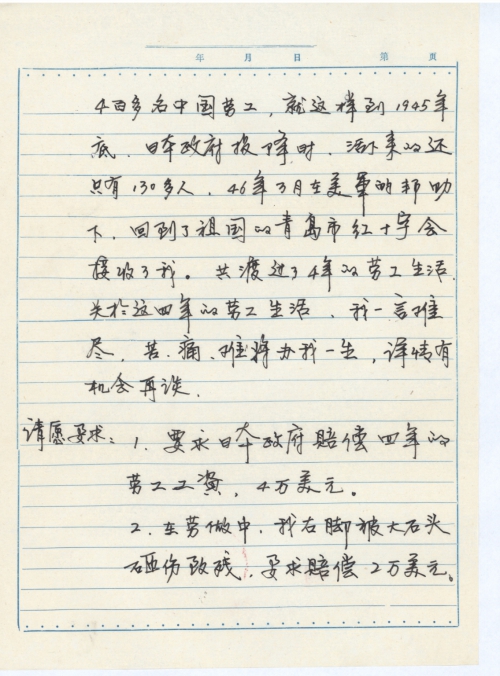 年 月 日 第 页
4百多名中国劳工，就这样到1945年
底，日本政府投降时，活下来的还
只有130多人，46年3月在美军的邦助
下，回到了祖国的青岛市红十字会
接收了我。共渡过了4年的劳工生活，
关於这四年的劳工生活，我一言难
尽，苦、痛、难将办我一生，详情有
机会再谈.
请愿要求：1、要求日本政府赔偿四年的
劳工工资，4万美元。
2、在劳做中，我右脚被大石头
砸伤致残，要求赔偿2万美元。